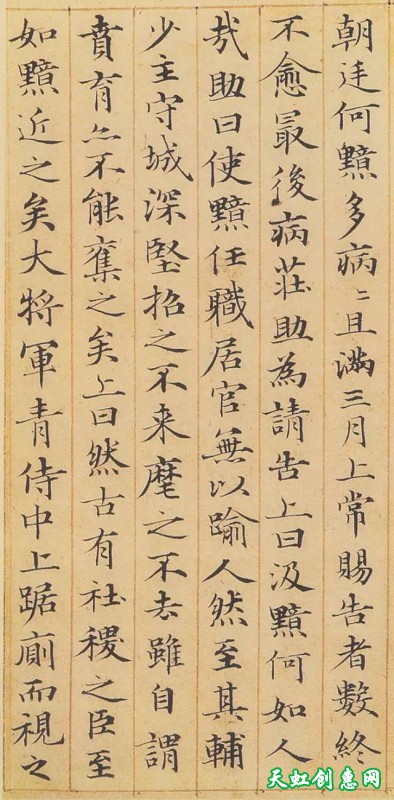 朝廷何黯多病〻且滿三月上常賜告者數終
不愈最後病莊助為請告上曰汲黯何如人
哉助曰使黯任職居官無以踰人然至其輔
少主守城深堅招之不来麾之不去雖自謂
賁育亦不能奪之矣上曰然古有社稷之臣至
如黯近之矣大将軍青侍中上踞廁而視之
天虹创惠网